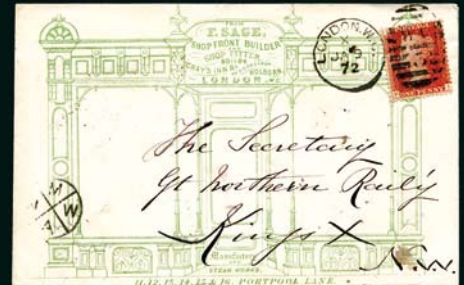 FROM
F. SAGE,
SHOP FRONT BUILDER
SHOP FITTER,
HOLBORN.
LONDON.
LONDON.W.C.
72
ONE PENNY
The Secretary
Gt Northern Raily
Kings X
N.W.
Manufactory
STEAM WORKS.
11, 12, 13, 14, 15 & 16, PORTPOOL LANE.